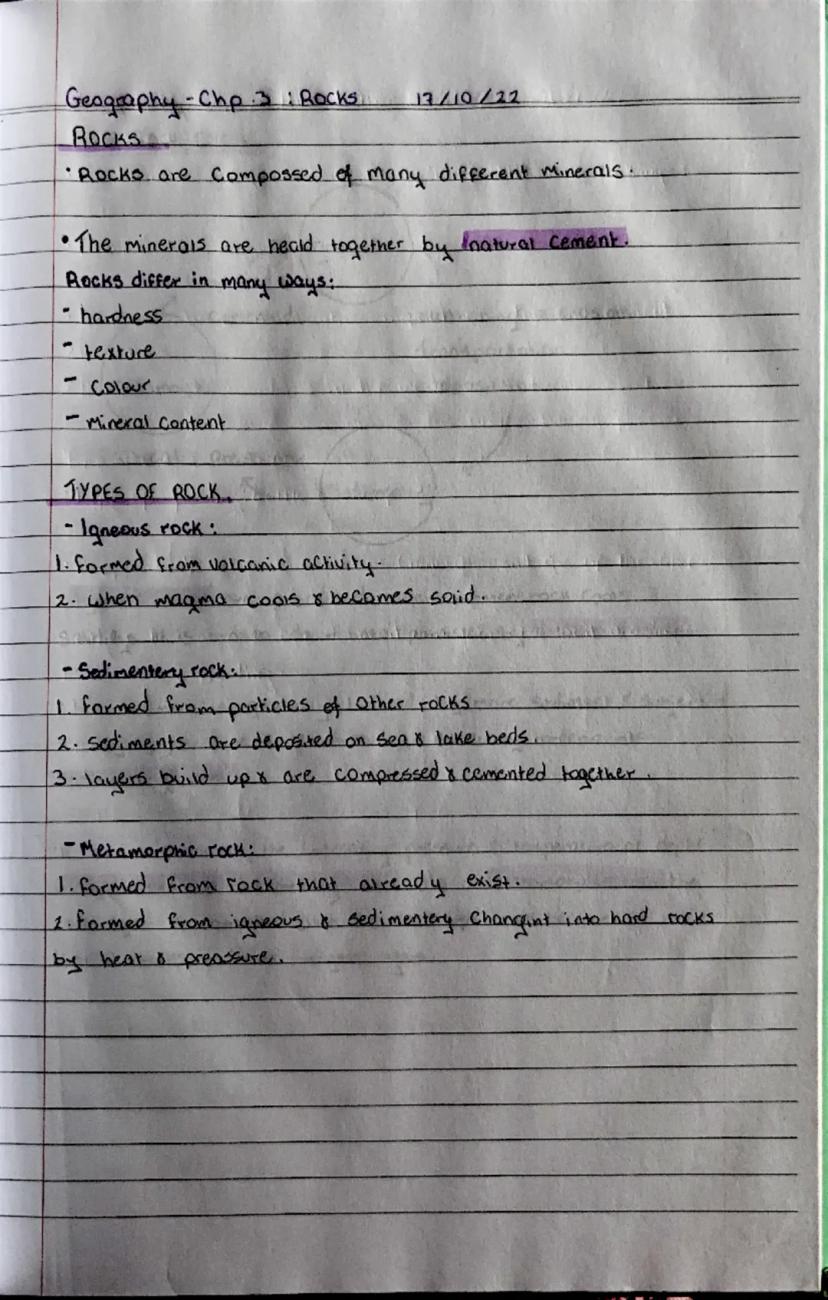 Geography - Chp. 3 : Rocks 17/10/22
ROCKS
• Rocks are compossed of many different minerals.
• The minerals are heald together by natural cement.
Rocks differ in many ways:
- hardness
- texture
- colour
- mineral content
TYPES OF ROCK.
- Igneous rock:
1. formed from volcanic activity.
2. when magma cools & becomes solid.
- Sedimentery rock:
1. formed from particles of other rocks
2. sediments are deposited on sea & lake beds.
3. layers build up & are compressed & cemented together.
- Metamorphic rock:
1. formed from rock that already exist.
2. formed from igneous & sedimentery changint into hard rocks
by heat & preassure.